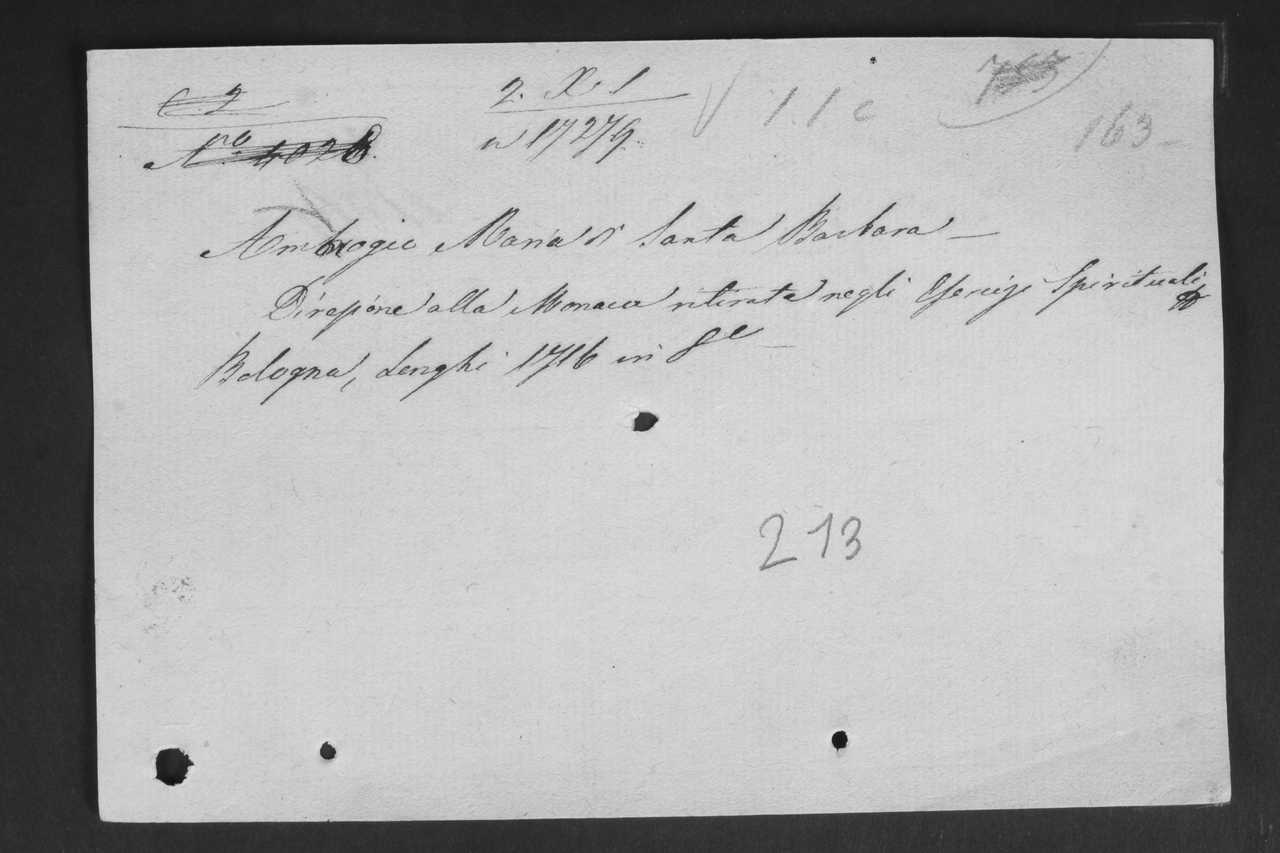 C. 2
2. X. 1
N.ro 4028
n 17279
1 1 c
763
163
Ambrogio Maria di Santa Barbara
Direzione alla Monaca ritirata negli Esercizj Spirituali
Bologna, Lenghi 1716 in 8e
213